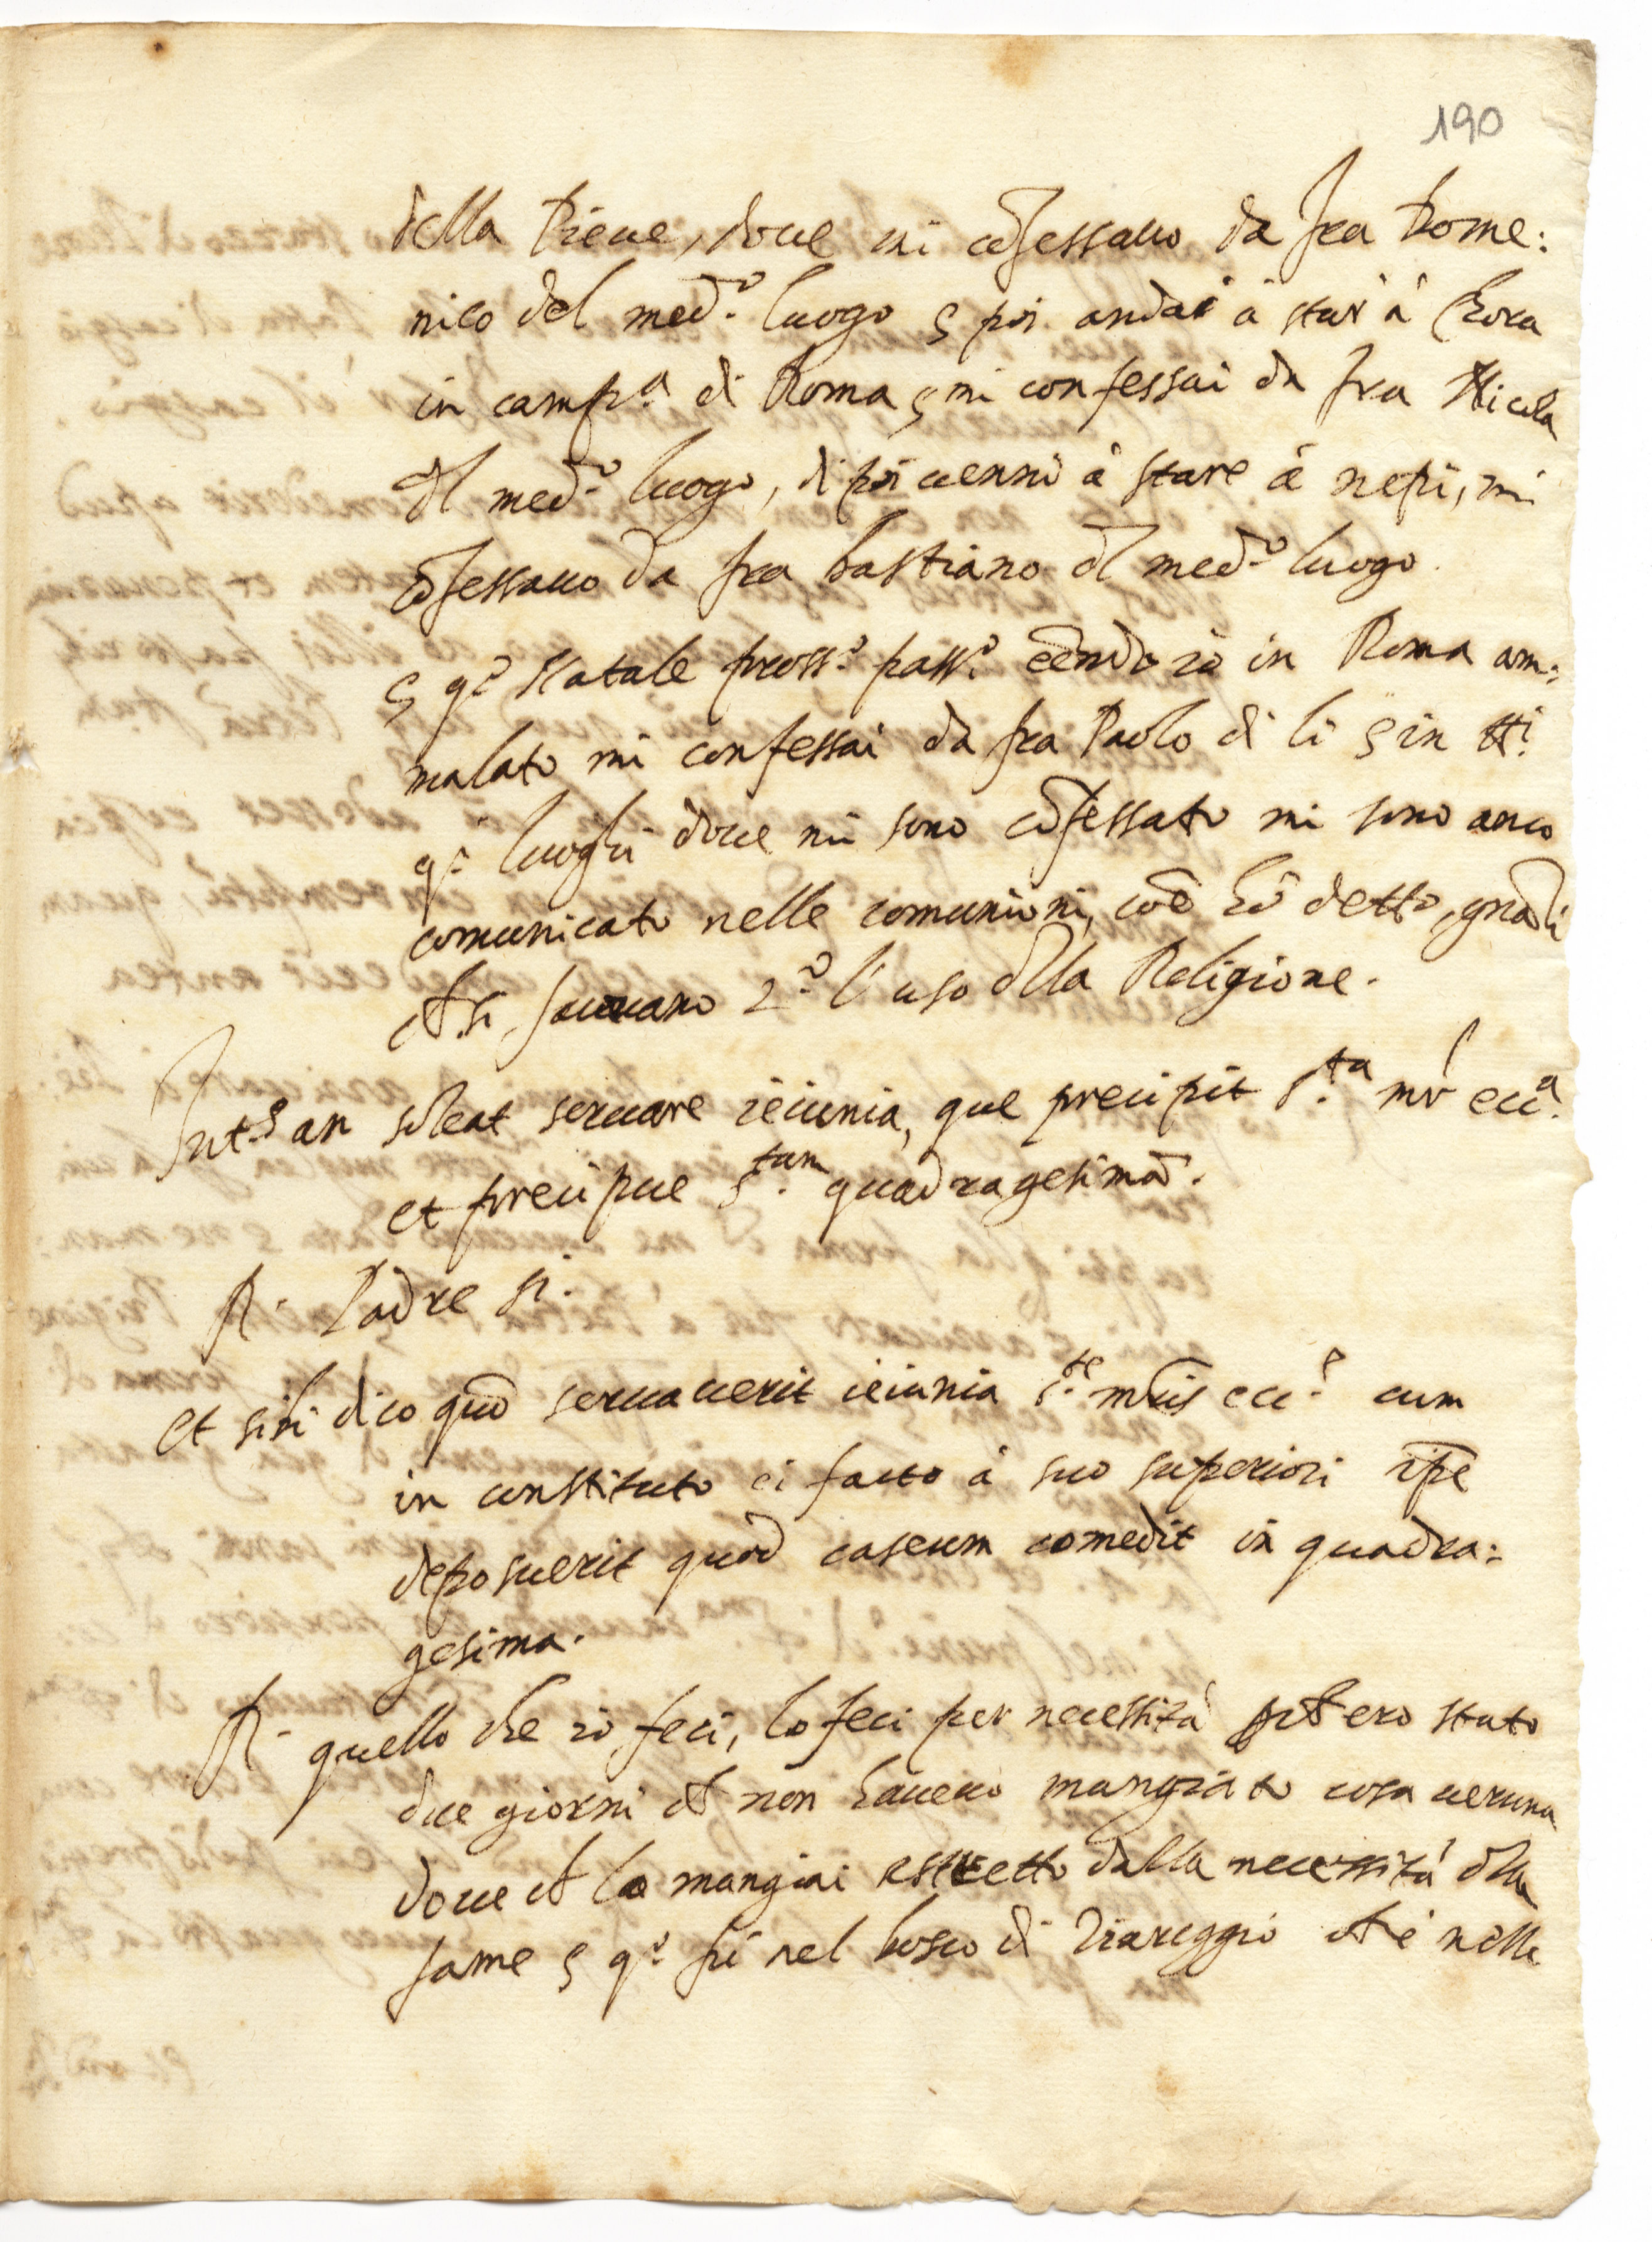 190
della Pieue, doue mi cōfessauo da fra Dome:
nico del med.º luogo e poi andai à star à Chora
in camp.ª di Roma e mi confessai da fra Nicola
del med.º luogo, di poi uenni à stare à nepi, mi
cōfessauo da fra bastiano dl med.º luogo.
e q.º Natale pross.º pass.º eēndo io in Roma am:
malato mi confessai da fra Paolo di li e in tt.i
q.i luoghi doue mi sono cōfessato mi sono anco
comunicato nelle comunioni, coē hò detto, gnāli
ch si faceuano 2.º l'uso dlla Religione.
Int.s an soleat seruare ieiunia, que precipit S.ta mr ecc.a
et precipue S.tam quadragesimā.
R. Padre si.
Et sibi dico quō seruauerit ieiunia S.te mris ecc.e cum
in constituto ei facto à suo superiori ipē
deposuerit quod caseum comedit in quadra:
gesima.
R. quello che io feci, lo feci per necessità pch ero stato
due giorni ch non haueuo mangiato cosa ueruna
doue ch lo mangiai astretto dalla necessità dlla
fame e q.º fù nel bosco di Viareggio ch è nella